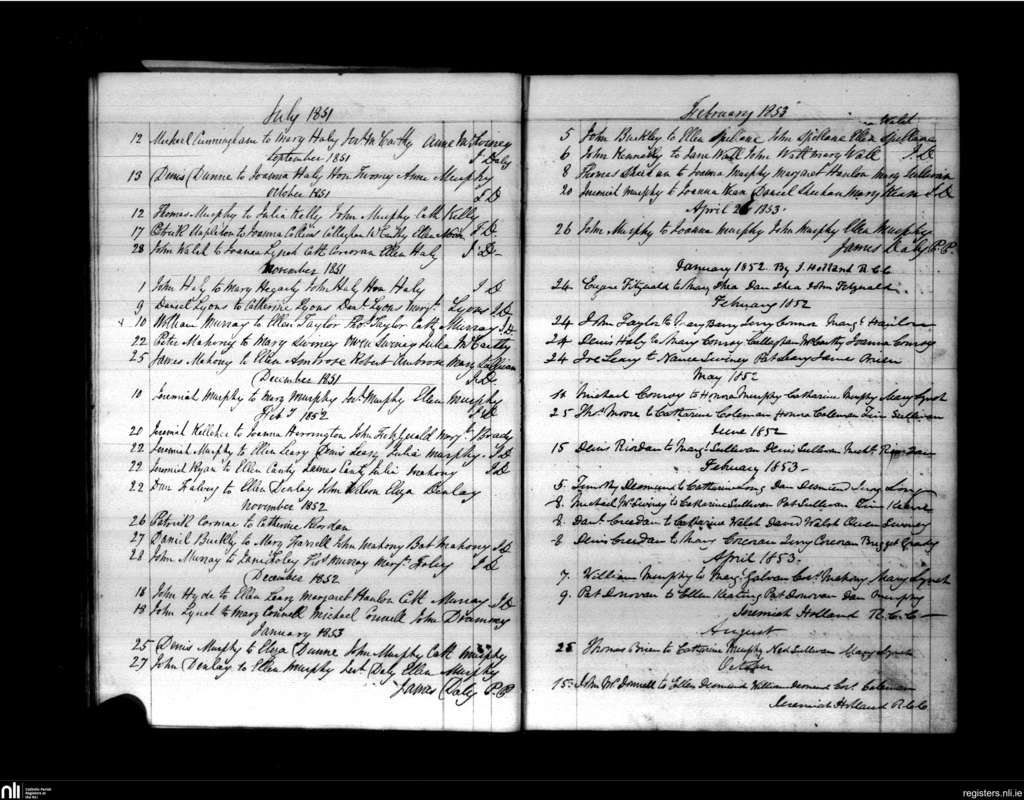 July 1851
12 Michael Cunningham to Mary Haly Anne McSwiney
J Daly
September 1851
13 Denis Dunne to Joanna Haly Hon Twomy Anne Murphy
October 1851 J D
12 Thomas Murphy to Julia Kelly John Murphy Cath Kelly
17 Patrick to Joanna Collins Callaghan McCarthy Ellen J D
28 John Walsh to Joanna Lynch Cath Corcoran Ellen Haly J D
November 1851
1 John Haly to Mary Hegarty John Haly Hon Haly J D
9 Daniel Lyons to Catherine Lyons Danl Lyons Margt Lyons J D
10 William Murray to Ellen Taylor Thos Taylor Cath Murray J D
22 Peter Mahony to Mary Swiney Owen Swiney Julia McCarthy
25 James Mahony to Ellen Ambrose Robert Ambrose Mary Sullivan
December 1851 J D
10 Jeremiah Murphy to Mary Murphy Murphy Ellen Murphy
Feby 1852 J D
20 Jeremiah Kelleher to Joanna Harrington John Fitzgerald Margt Brady
22 Jeremiah Murphy to Ellen Leary Denis Leary Julia Murphy J D
22 Jeremiah Ryan to Ellen Canty James Canty Julia Mahony J D
22 Dan to Ellen Denlay John Wilson Eliza Denlay
November 1852
26 Patrick Cormac to Catherine Riordan
27 Daniel Buckly to Mary John Mahony Bat Mahony J D
28 John Murray to Jane Foley Thos Murray Margt Foley J D
December 1852
18 John Hyde to Ellen Leary Margaret Hanlon Cath Murray J D
18 John Lynch to Mary Connell Michael Connell John Drummy
January 1853
25 Denis Murphy to Eliza Dunne John Murphy Cath Murphy
27 John Denlay to Ellen Murphy Daly Ellen Murphy
James Daly P.P.
February 1853
Walsh
5 John Buckley to Ellen Spillane John Spillane Ellen Spillane
6 John Kenneally to Jane Wall John Wall Mary Wall J D
8 Thomas Sheehan to Joanna Murphy Margaret Hanlon Mary Sullivan
20 Jeremiah Murphy to Joanna Daniel Mary J D
April 26 1853
26 John Murphy to Joanna Murphy John Murphy Ellen Murphy
James Daly P.P.
January 1852 By J Holland R C C
24 Eugene Fitzgerald to Mary Shea Dan Shea John Fitzgerald
February 1852
24 John Taylor to Mary Barry Jerry Connor Margt Hanlon
24 Denis Haly to Mary Conroy Callaghan McCarthy Joanna Conroy
24 Joe Leary to Nance Swiney Pat Leary James Brien
May 1852
11 Michael Conroy to Honora Murphy Catharine Murphy Mary Lynch
25 Thos Moore to Catharine Coleman Honora Coleman Tim Sullivan
June 1852
15 Denis Riordan to Margt Sullivan Denis Sullivan Michl Riordan
February 1853
5 Timothy Desmond to Catharine Long Dan Desmond Long
8 Michael McSwiney to Catharine Sullivan Pat Sullivan Tim
8 Danl Creedan to Catharine Walsh David Walsh Swiney
8 Denis Creedan to Mary Corcoran Jerry Corcoran Bridget Grady
April 1853
7 William Murphy to Margt Galvan Mahony Mary Lynch
9 Pat Donovan to Ellen Keating Pat Donovan Dan Murphy
Jeremiah Holland R.C.C.
August
25 Thomas Brien to Catharine Murphy Ned Sullivan Mary Lynch
October
15 John McDonnell to Ellen Desmond William Desmond Coleman
Jeremiah Holland R.C.C.
nli
Catholic Parish
Registers at
the NLI
registers.nli.ie